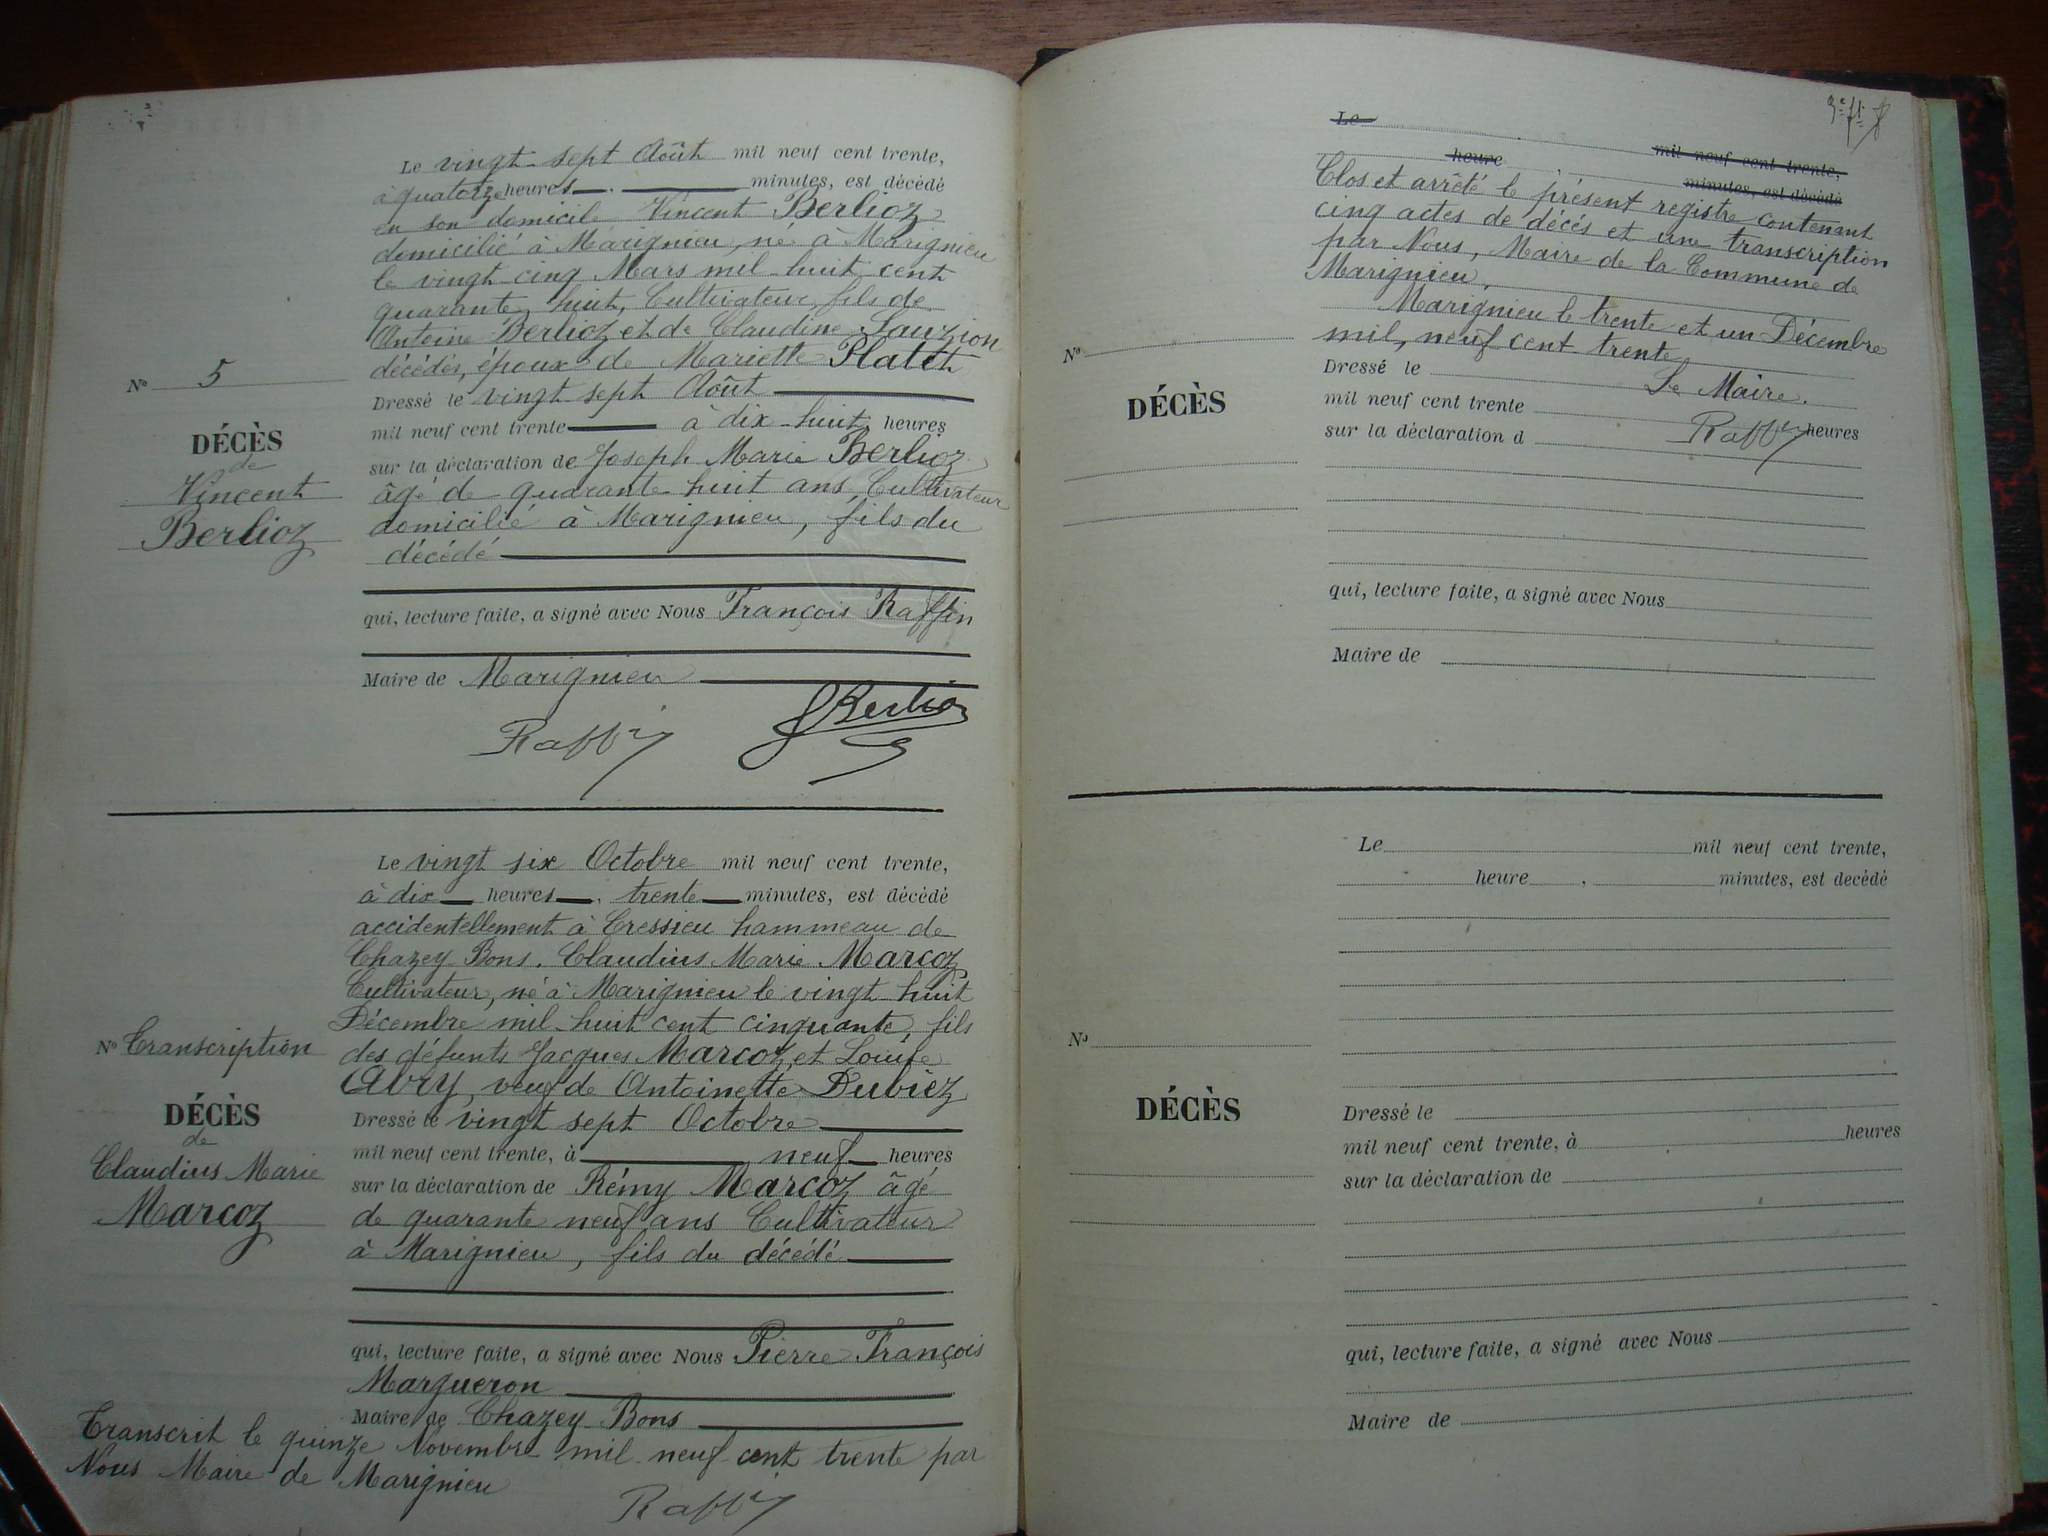 Le vingt-sept Août mil neuf cent trente,
à quatorze heures minutes, est décédé
en son domicile Vincent Berlioz
domicilié à Marignieu, né à Marignieu
le vingt-cinq Mars mil-huit-cent
quarante huit, Cultivateur, fils de
Antoine Berlioz et de Claudine Lauzion
décédés, époux de Mariette Platet
Dressé le vingt sept Août
mil neuf cent trente à dix-huit heures
sur la déclaration de Joseph Marie Berlioz
âgé de quarante-huit ans, Cultivateur
domicilié à Marignieu, fils du
décédé
qui, lecture faite, a signé avec Nous François Raffin
Maire de Marignieu
Raffin
J Berlioz
No 5
DÉCÈS
de
Vincent
Berlioz
Le vingt six Octobre mil neuf cent trente,
à dix heures, trente minutes, est décédé
accidentellement à Cressieu hammeau de
Chazey Bons. Claudius Marie Marcoz
Cultivateur, né à Marignieu le vingt-huit
Décembre mil-huit cent cinquante, fils
des défunts Jacques Marcoz, et Louise
Avry, veuf de Antoinette Dubiez
Dressé le vingt sept Octobre
mil neuf cent trente, à neuf heures
sur la déclaration de Rémy Marcoz âgé
de quarante neuf ans Cultivateur
à Marignieu, fils du décédé
qui, lecture faite, a signé avec Nous Pierre François
Margueron
Maire de Chazey-Bons
No Transcription
DÉCÈS
de
Claudius Marie
Marcoz
Transcrit le quinze Novembre mil neuf cent trente par
Nous Maire de Marignieu
Raffin
Le mil neuf cent trente,
heure minutes, est décédé
Clos et arrêté le présent registre contenant
cinq actes de décès et une transcription
par Nous, Maire de la Commune de
Marignieu,
Marignieu le trente et un Décembre
mil, neuf cent trente
Dressé le Le Maire.
mil neuf cent trente
sur la déclaration d Raffin heures
qui, lecture faite, a signé avec Nous
Maire de
No
DÉCÈS
Le mil neuf cent trente,
heure , minutes, est decédé
Dressé le
mil neuf cent trente, à heures
sur la déclaration de
qui, lecture faite, a signé avec Nous
Maire de
No
DÉCÈS